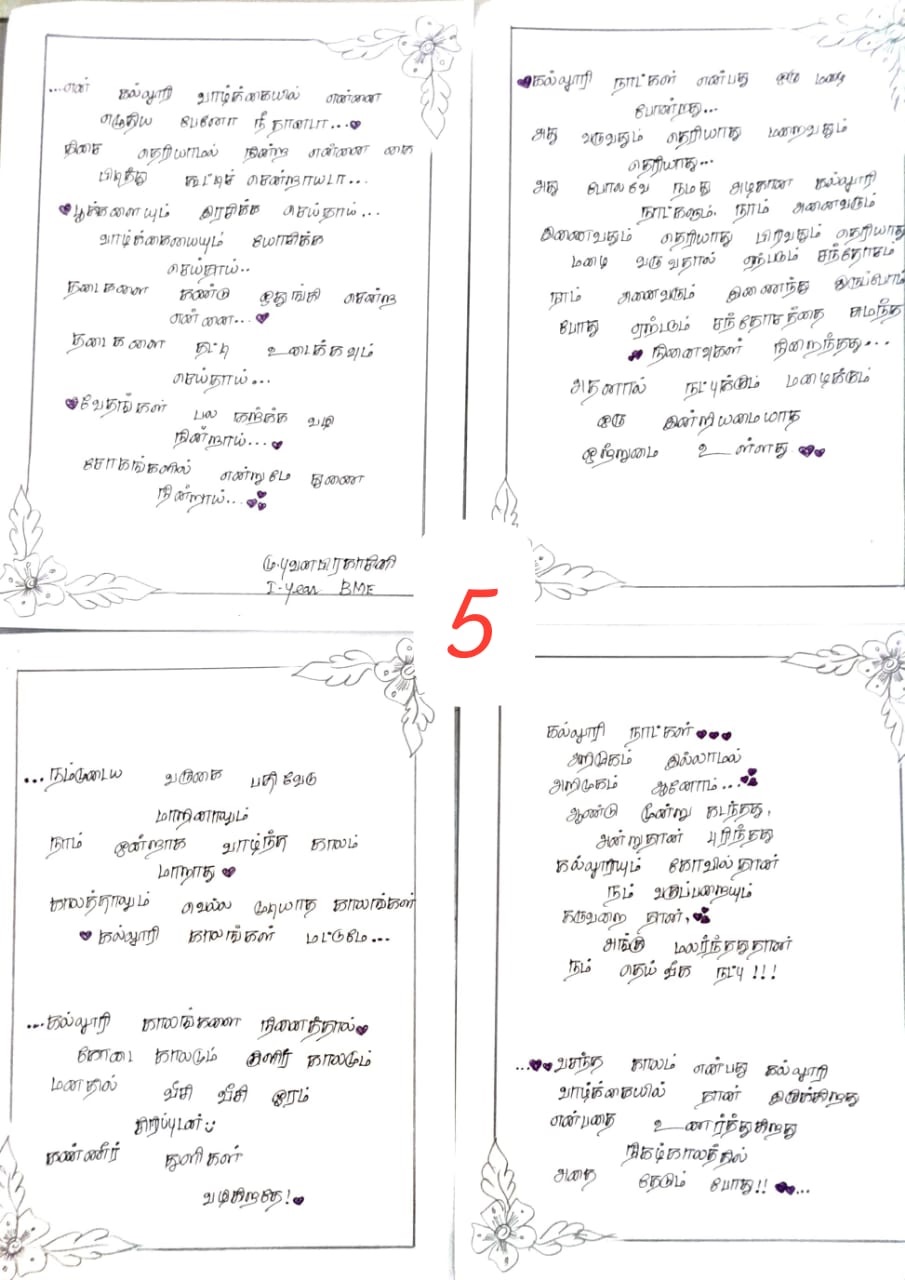 ...என் கல்லூரி வாழ்க்கையில் என்னை
எழுதிய பேனா நீ தானடா...
திசை தெரியாமல் நின்ற என்னை கை
பிடித்து கூட்டிச் சென்றாயடா...
பூக்களையும் இரசிக்க செய்தாய்...
வாழ்க்கையையும் யோசிக்க
செய்தாய்..
தடைகளை கண்டு ஒதுங்கி சென்ற
என்னை...
தடைகளை தட்டி உடைக்கவும்
செய்தாய்...
வேதங்கள் பல கற்க்க வழி
நின்றாய்...
சோகங்களில் என்றுமே துணை
நின்றாய்...
மு.புவனபிரகாசினி
I-Year BME
கல்லூரி நாட்கள் என்பது ஒரு மழை
போன்றது...
அது வருவதும் தெரியாது மறைவதும்
தெரியாது...
அது போலவே நமது அழகான கல்லூரி
நாட்களும், நாம் அனைவரும்
இணைவதும் தெரியாது பிரிவதும் தெரியாது
மழை வருவதால் ஏற்படும் சந்தோசம்
நாம் அனைவரும் இணைந்து இருப்போம்
போது ஏற்படும் சந்தோசத்தை சுமந்த
நினைவுகள் நிறைந்தது...
அதனால் நட்புக்கும் மழைக்கும்
ஒரு இன்றியமையாத
ஒற்றுமை உள்ளது
5
...நம்முடைய வருகை பதிவேடு
மாறினாலும்
நாம் ஒன்றாக வாழ்ந்த காலம்
மாறாது
காலத்தாலும் வெல்ல முடியாத காலங்கள்
கல்லூரி காலங்கள் மட்டுமே...
...கல்லூரி காலங்களை நினைத்தால்
கோடை காலமும் குளிர் காலமும்
மனதில் வீசி வீசி ஓரம்
சிரிப்புடன்
கண்ணீர் துளிகள்
வழிகிறதே!
கல்லூரி நாட்கள்
அறிமுகம் இல்லாமல்
அறிமுகம் ஆனோம்...
ஆண்டு மூன்று கடந்தது,
அன்றுதான் புரிந்தது
கல்லூரியும் கோவில்தான்
நம் வகுப்பறையும்
கருவறை தான்,
அங்கு மலர்ந்ததுதான்
நம் தெய்வீக நட்பு!!!
...வசந்த காலம் என்பது கல்லூரி
வாழ்க்கையில் தான் இருக்கிறது
என்பதை உணர்த்துகிறது
நிகழ்காலத்தில்
அதை தேடும் போது!! ...